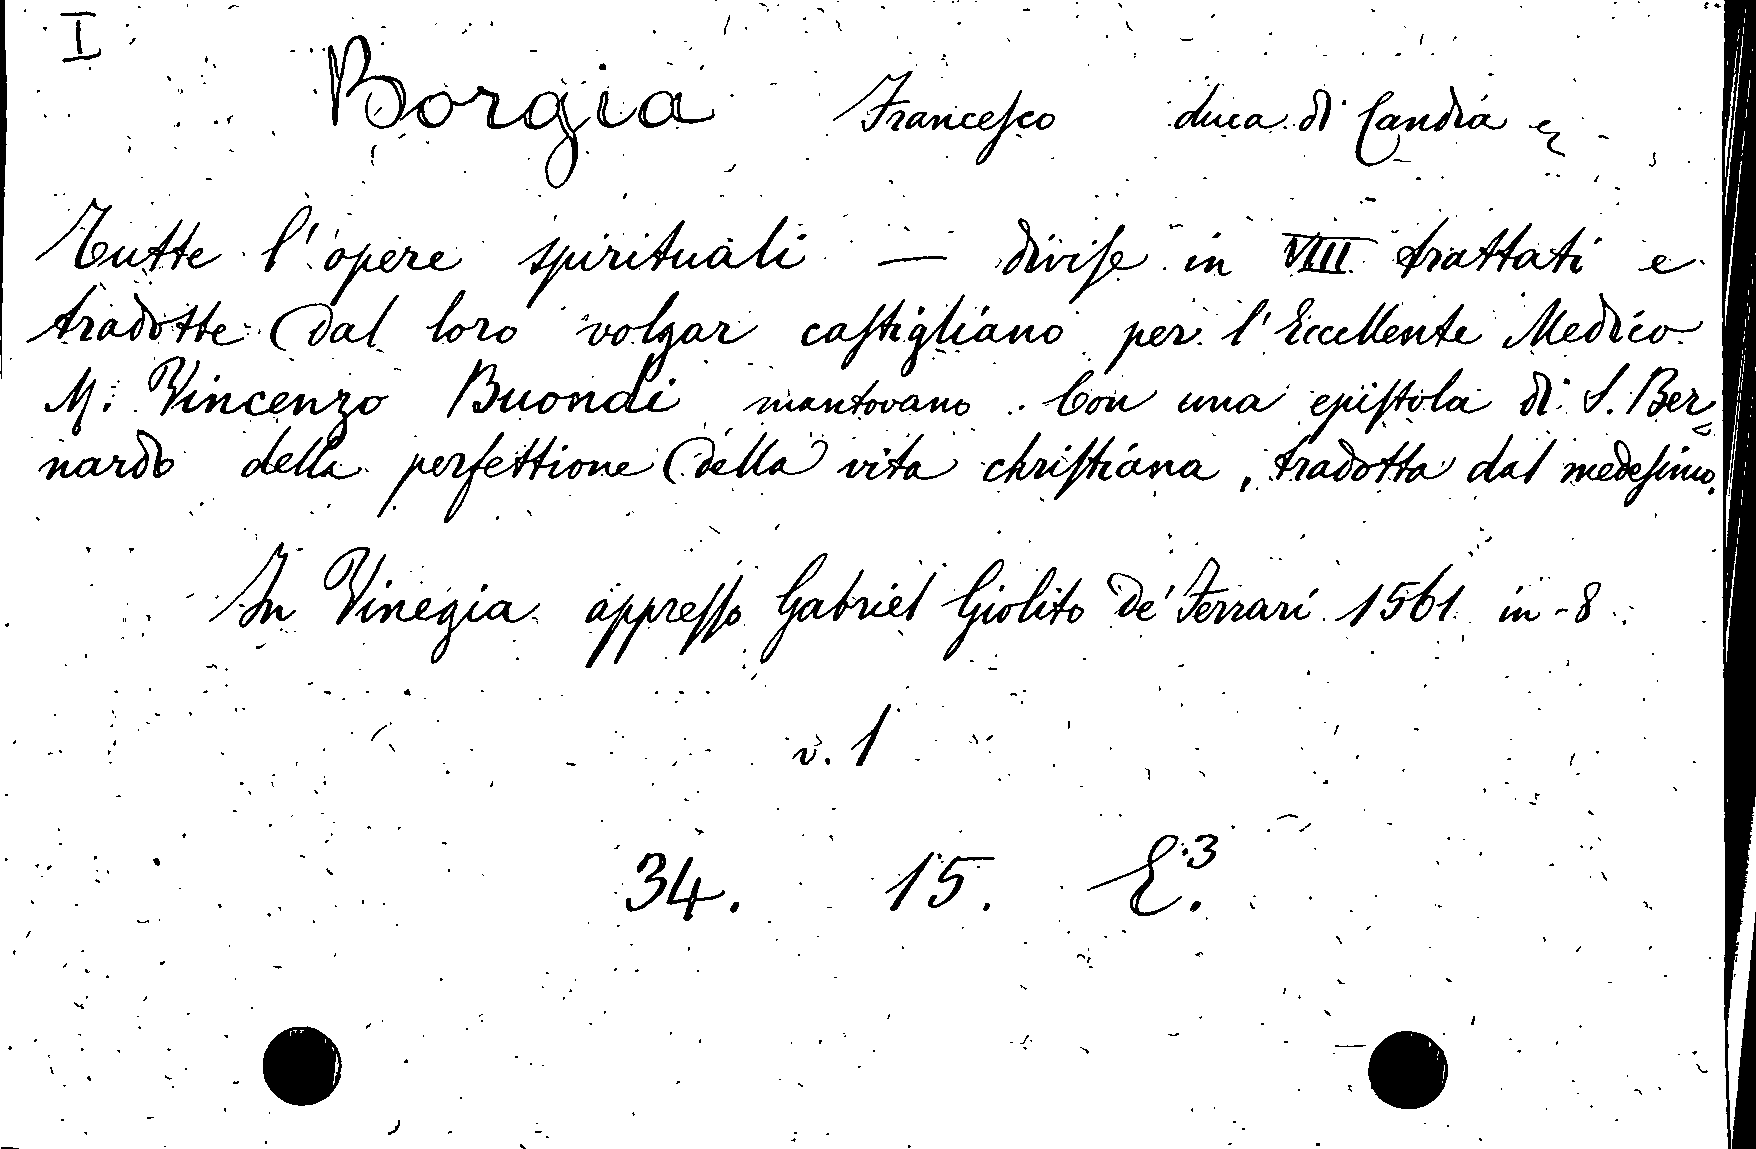 I
Borgia Francesco duca di Candia
Tutte l'opere spirituali — divise in VIII trattati e
tradotte dal loro volgar castigliano per l'Eccellente Medico
M. Vincenzo Buondi mantovano. Con una epistola di S. Ber=
nardo della perfettione della vita christiana, tradotta dal medesimo.
In Vinegia appresso Gabriel Giolito de' Ferrari 1561 in-8
v. 1
34. 15. E.3